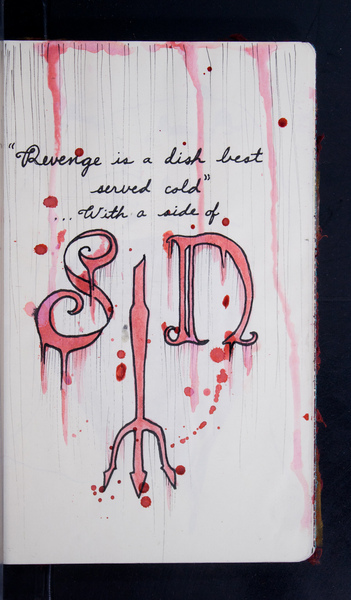 "Revenge is a dish best
served cold"
...With a side of
SIN